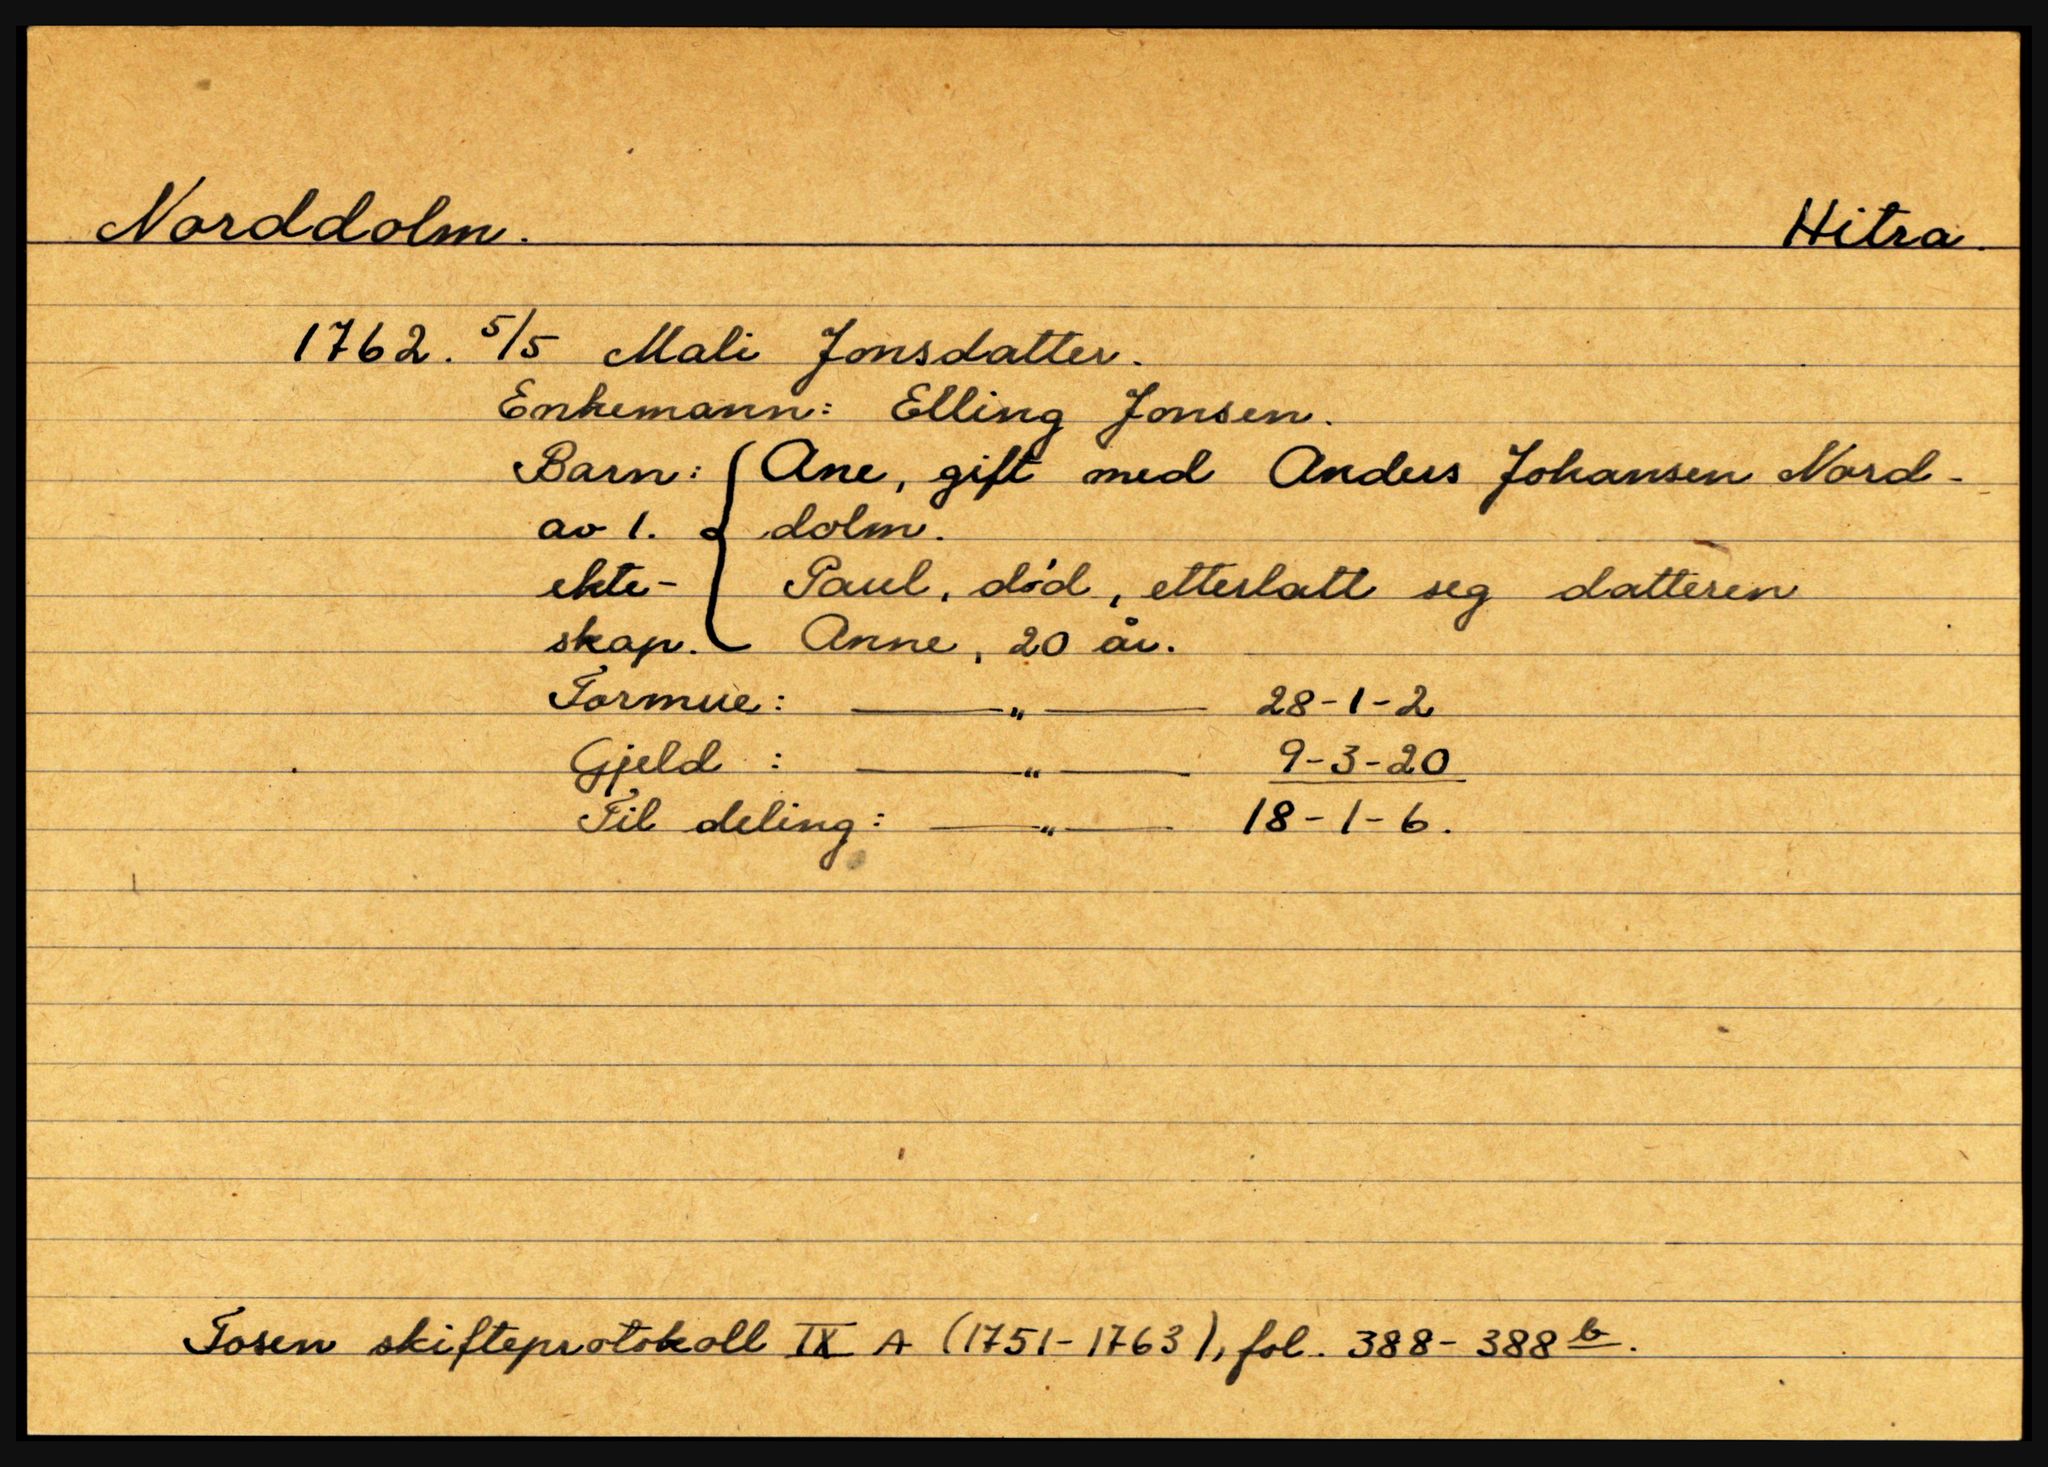 Norddolm. Hitra.
1762. 5/5 Mali Jonsdatter.
Enkemann: Elling Jonsen.
Barn: Ane, gift med Anders Johansen Nord-
av 1. dolm.
ekte- Paul, død, etterlatt seg datteren
skap. Anne, 20 år.
Formue: —„— 28-1-2
Gjeld : —„— 9-3-20
Til deling: —„— 18-1-6.
Fosen skifteprotokoll IX A (1751-1763), fol. 388-388b.